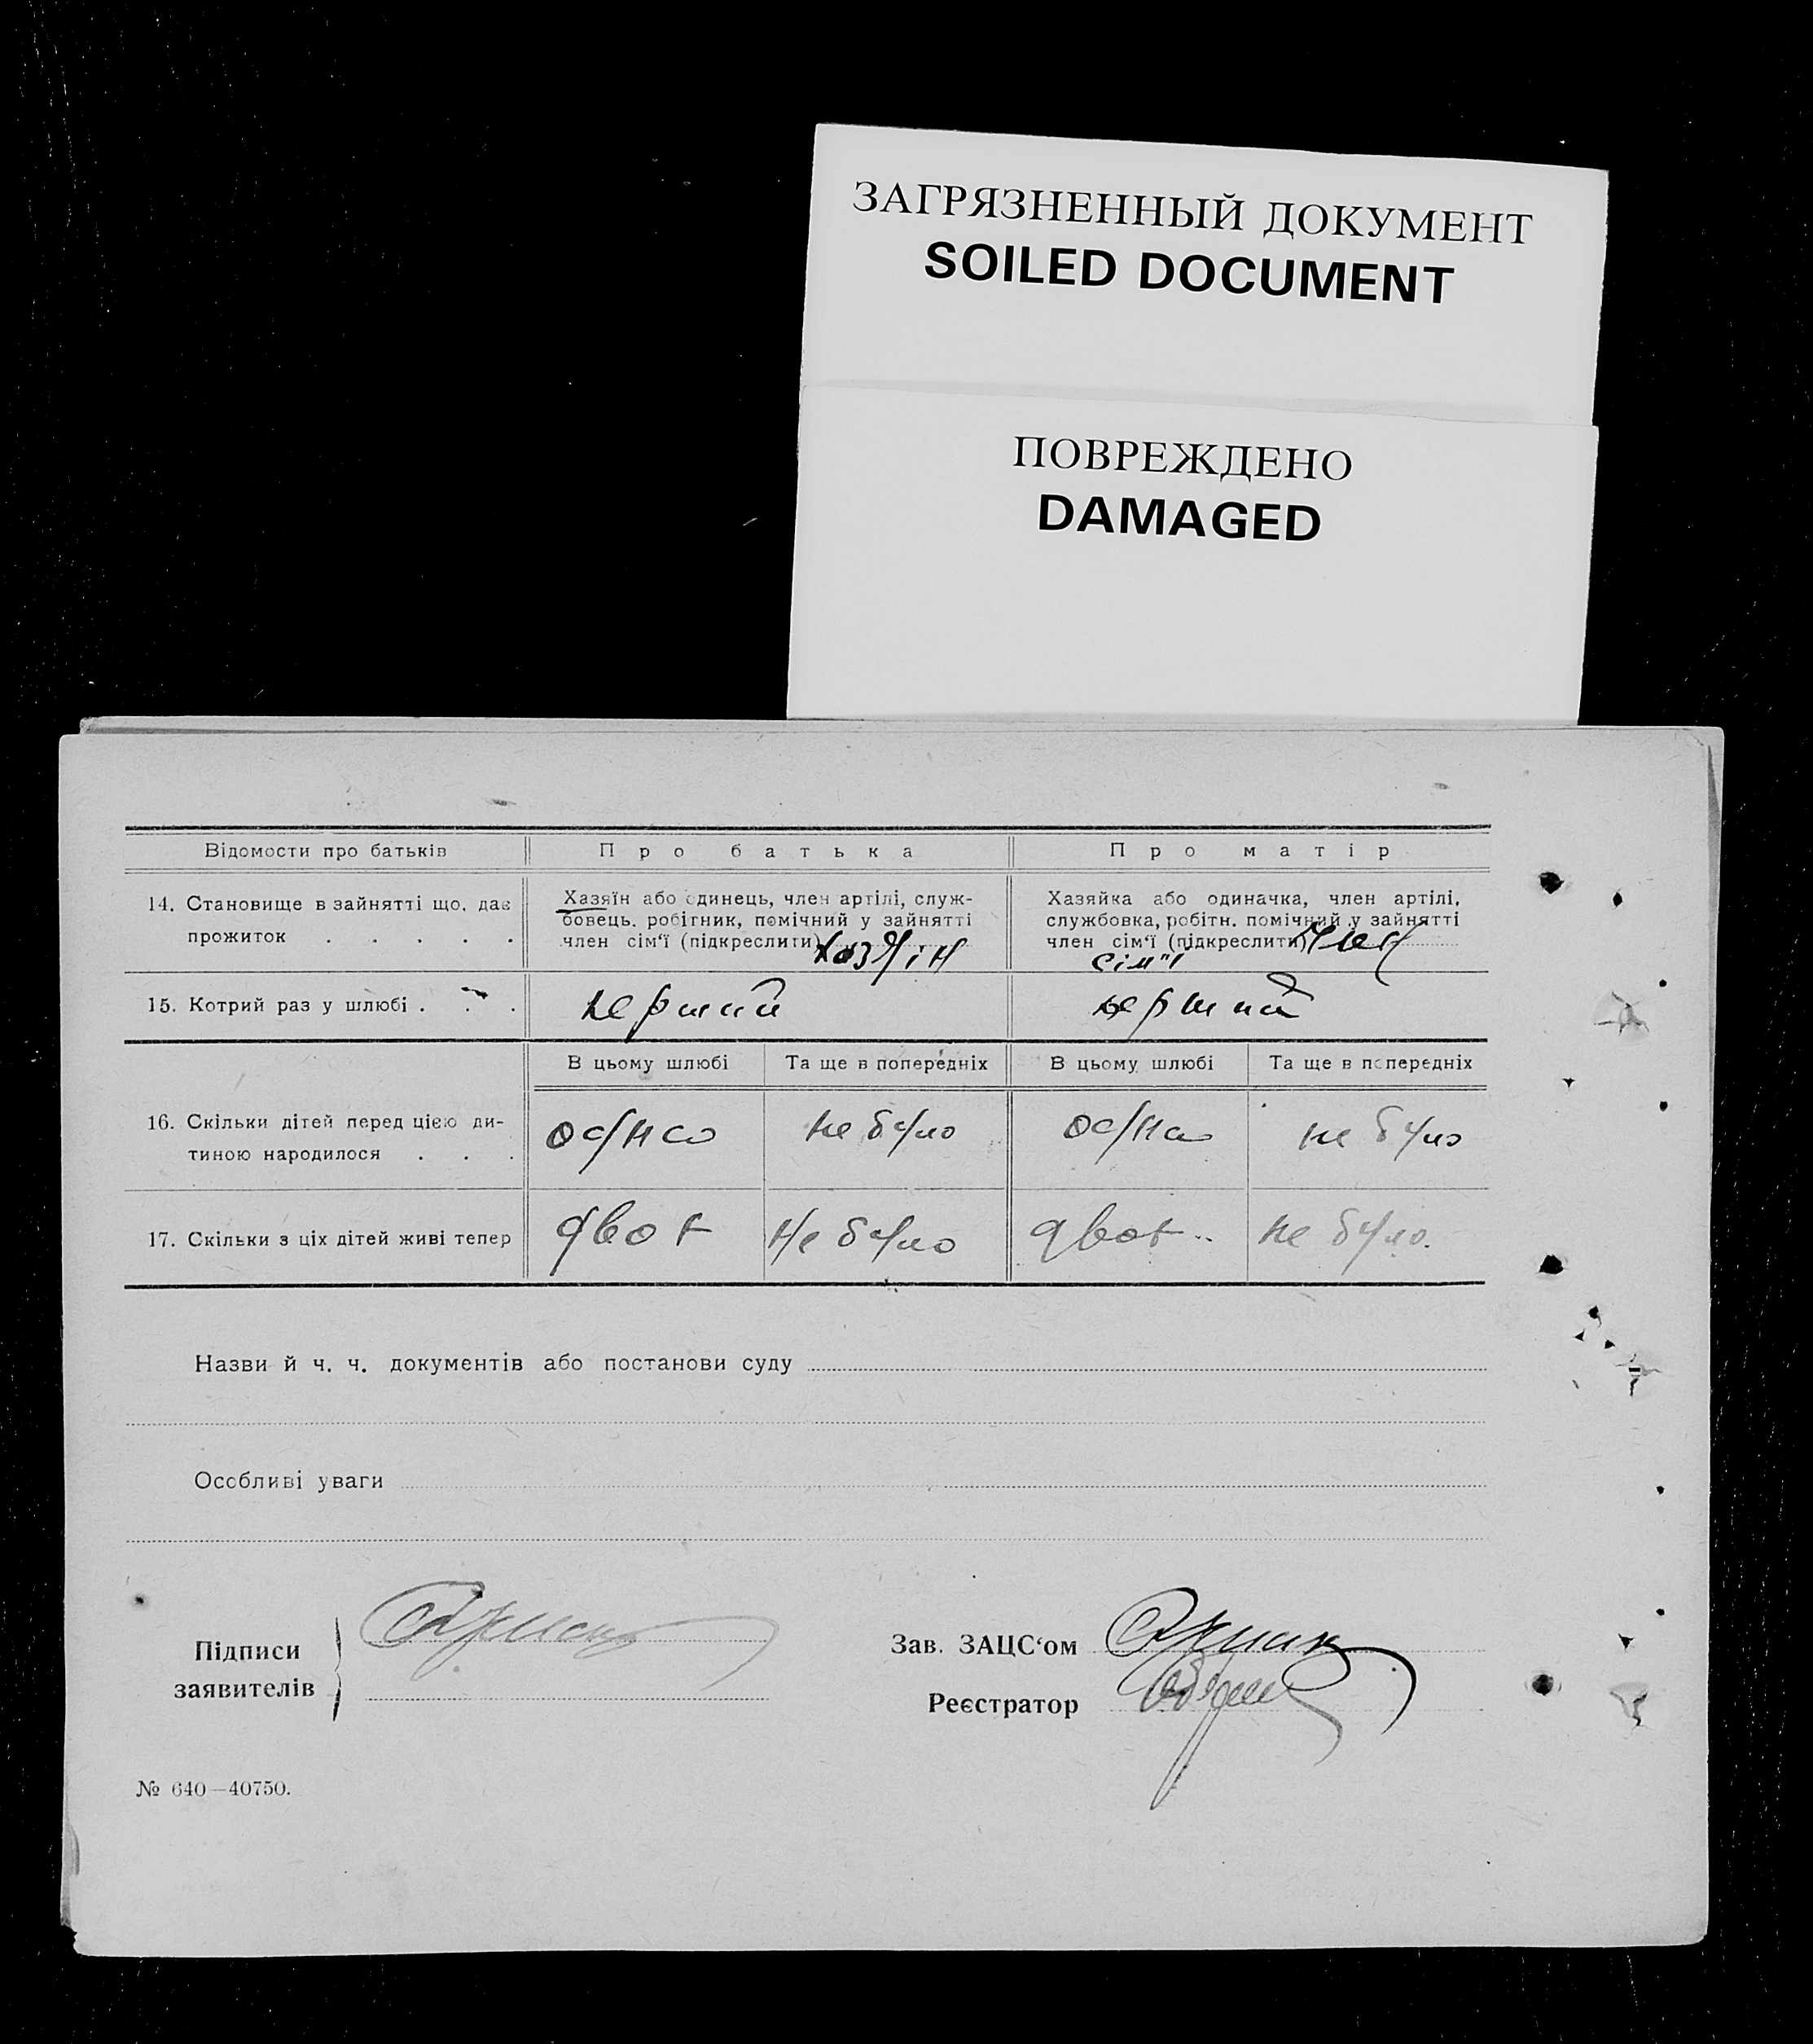 ЗАГРЯЗНЕННЫЙ ДОКУМЕНТ
SOILED DOCUMENT
ПОВРЕЖДЕНО
DAMAGED
Відомости про батьків Про батька Про матір
14. Становище в зайнятті що, дає
прожиток . . . . .
Хазяїн або одинець, член артілі, служ-
бовець. робітник, помічний у зайнятті
член сім'ї (підкреслити) Хозяїн
Хазяйка або одиначка, член артілі,
службовка, робітн. помічний у зайнятті
член сім'ї (підкреслити) член
сім"ї
15. Котрий раз у шлюбі . . . перший перший
В цьому шлюбі Та ще в попередніх В цьому шлюбі Та ще в попередніх
16. Скільки дітей перед цією ди-
тиною народилося . . .
одно не було одна не було
17. Скільки з ціх дітей живі тепер двоє не було двоє не було.
Назви й ч. ч. документів або постанови суду
Особливі уваги
Підписи
заявителів
Зав. ЗАЦС‘ом
Реєстратор
№ 640—40750.